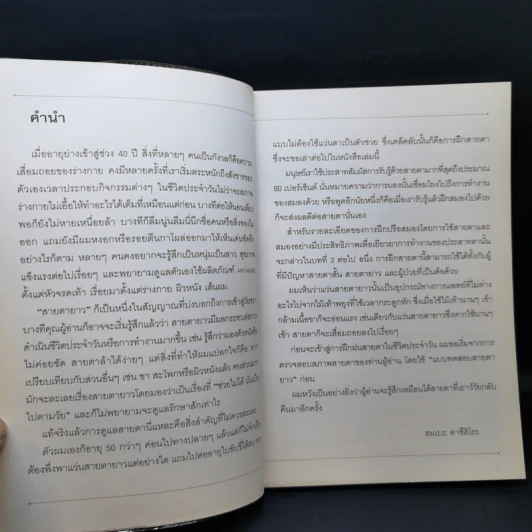 คำนำ
เมื่ออายุย่างเข้าสู่ช่วง 40 ปี สิ่งที่หลายๆ คนเป็นกังวลก็คือความ
เสื่อมถอยของร่างกาย คงมีหลายครั้งที่เราเริ่มตระหนักถึงสังขารของ
ตัวเองเวลาประกอบกิจกรรมต่างๆ ในชีวิตประจำวันไม่ว่าจะสภาพ
ร่างกายไม่เอื้อให้ทำอะไรได้เต็มที่เหมือนแต่ก่อน บางทีต่อให้นอนเต็ม
พอก็ยังไม่หายเหนื่อยล้า บางทีก็ลืมนู่นลืมนี่นึกชื่อคนหรือสิ่งของไม่
ออก แถมยังมีผมหงอกหรือรอยตีนกาโผล่ออกมาให้เห็นเด่นชัดอีก
อย่างไรก็ตาม หลายๆ คนคงอยากจะรู้สึกเป็นหนุ่มเป็นสาว สุขภาพ
แข็งแรงต่อไปเรื่อยๆ และพยายามดูแลตัวเองใช้ผลิตภัณฑ์ ANTI-AGING
ตั้งแต่หัวจรดเท้า เรื่อยมาตั้งแต่ร่างกาย ผิวหนัง เส้นผม
"สายตายาว" ก็เป็นหนึ่งในสัญญาณที่บ่งบอกถึงการเข้าสู่วัยชรา
บางทีคุณผู้อ่านก็อาจจะเริ่มรู้สึกแล้วว่า สายตายาวมีผลกระทบต่อการ
ดำเนินชีวิตประจำวันหรือการทำงานมากขึ้น เช่น รู้สึกว่ามองตัวหนังสือ
ไม่ค่อยชัด สายตาล้าได้ง่ายๆ แต่สิ่งที่ทำให้ผมแปลกใจก็คือ หาก
เปรียบเทียบกับส่วนอื่นๆ เช่น ขา สะโพกหรือผิวหนังแล้ว คนส่วนมาก
มักจะละเลยเรื่องสายตายาวโดยมองว่าเป็นเรื่องที่ "ช่วยไม่ได้ มันเป็น
ไปตามวัย" และก็ไม่พยายามจะดูแลรักษาสักเท่าไร
แท้จริงแล้วการดูแลสายตานี่แหละคือสิ่งสำคัญที่ไม่ควรละเลย
ตัวผมเองก็อายุ 50 กว่าๆ ค่อนไปทางปลายๆ แล้วแต่ก็ไม่จำเป็น
ต้องพึ่งพาแว่นสายตายาวแต่อย่างใด แถมไปต่ออายุใบขับขี่ได้สบายๆ
แบบไม่ต้องใช้แว่นตาเป็นตัวช่วย ซึ่งเคล็ดลับนั้นก็คือการฝึกสายตา
ซึ่งจะขอเล่าต่อไปในหนังสือเล่มนี้
มนุษย์เราใช้ประสาทสัมผัสการรับรู้ด้วยสายตามากที่สุดถึงประมาณ
80 เปอร์เซ็นต์ นั่นหมายความว่าการมองนั้นเชื่อมโยงไปถึงการทำงาน
ของสมองด้วย หรือพูดอีกนัยหนึ่งก็คือเมื่อเรารับรู้แล้วฝึกสมองไปด้วย
ก็จะส่งผลดีต่อสายตานั่นเอง
สำหรับรายละเอียดของการฝึกปรือสมองโดยการใช้สายตาและ
สมองอย่างมีประสิทธิภาพเพื่อเยียวยาการทำงานของประสาทตานั้น
จะกล่าวในบทที่ 3 ต่อไป อนึ่ง การฝึกสายตานี้สามารถใช้ได้ทั้งกับผู้
ที่มีปัญหาสายตาสั้น สายตายาว และผู้ป่วยที่เป็นต้อด้วย
ผมเห็นว่าแว่นสายตายาวนั้นเป็นอุปกรณ์ทางการแพทย์ที่ไม่ต่าง
อะไรไปจากไม้เท้าพยุงที่ใช้เวลากระดูกหัก ซึ่งเมื่อใช้ไม้เท้านานๆ เข้า
กล้ามเนื้อขาก็จะอ่อนแรง เช่นเดียวกับแว่นสายตายาวซึ่งหากใช้นานๆ
เข้า สายตาก็จะเสื่อมถอยลงไปเรื่อยๆ
ก่อนจะเข้าสู่การฝึกฝนสายตาในชีวิตประจำวัน ผมขอเริ่มจากการ
ตรวจสอบสภาพสายตาของท่านผู้อ่าน โดยใช้ "แบบทดสอบสายตา
ยาว" ก่อน
ผมหวังเป็นอย่างยิ่งว่าผู้อ่านจะรู้สึกเหมือนได้สายตาที่เยาว์วัยกลับ
คืนมาอีกครั้ง
ฮมเบะ คาซึฮิโระ